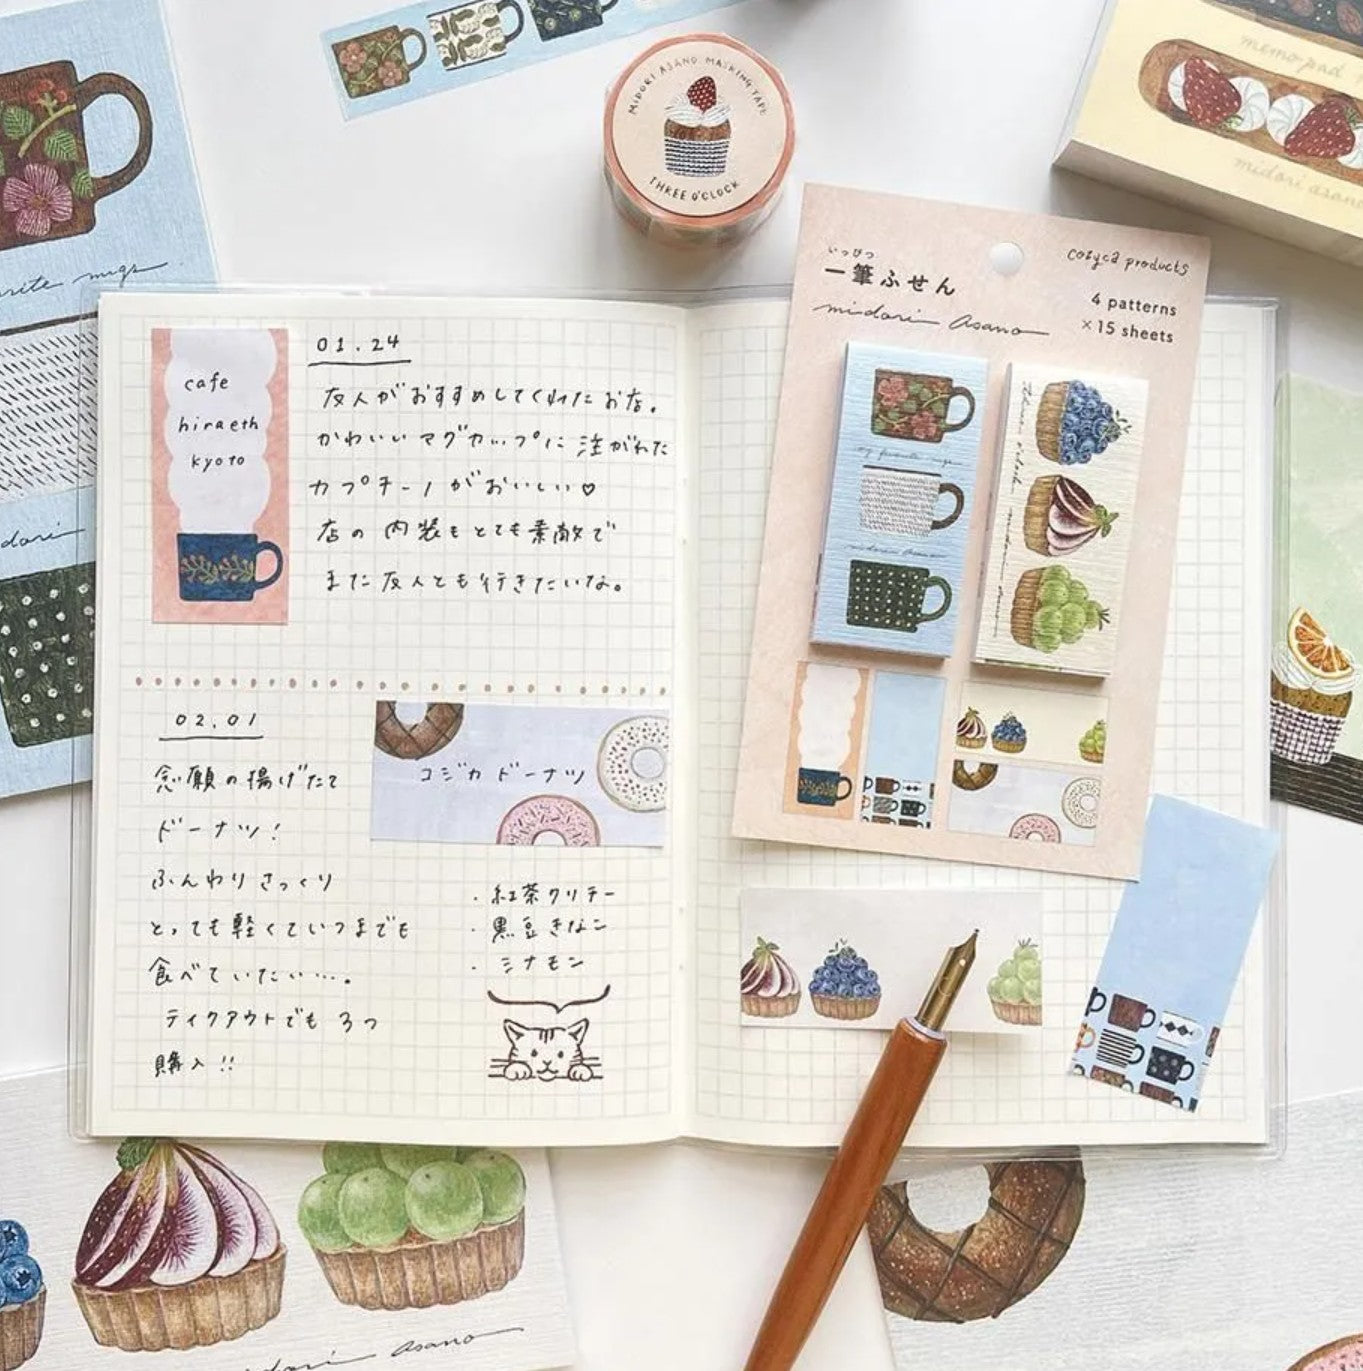 MIDORI ASANO MASKING TAPE
THREE O'CLOCK
memo pad
midori asano
いっぴつ
一筆ふせん
midori asano
cozyca products
4 patterns
×15 sheets
my favorite mugs
midori asano
midori asano
cafe
hiraeth
kyoto
01.24
友人がおすすめしてくれたお店。
かわいいマグカップに注がれた
カプチーノがおいしい♡
店の内装もとても素敵で
また友人とも行きたいな。
02.01
念願の揚げたて
ドーナツ!
ふんわりさっくり
とっても軽くていつまでも
食べていたい…。
テイクアウトでも3つ
購入!!
コジカドーナツ
・紅茶クリチー
・黒豆きなこ
・シナモン
midori asano